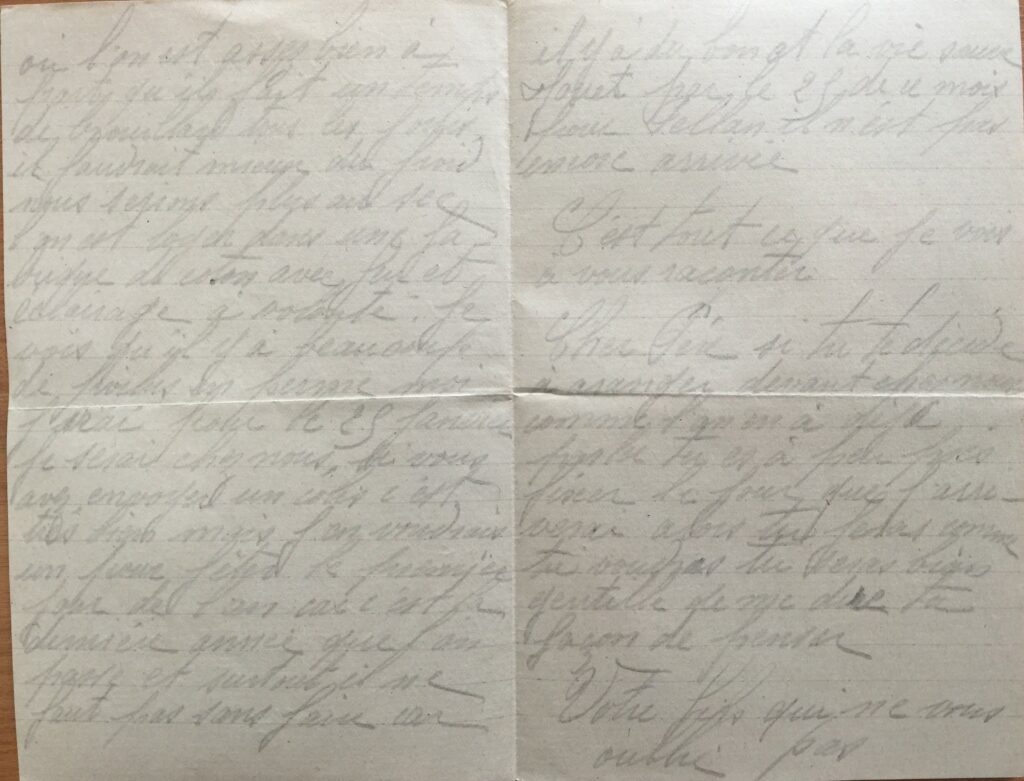 où l'on est assez bien à
part qu'ils fait un temps
de brouillard tous les jours
il faudrait mieux du froid
nous serions plus au sec
l'on est logé dans une fa-
brique de coton avec feu et
éclairage à volonté. Je
vois qu'il y a beaucoup
de poilus en perme moi
j'irai pour le 25 Janvier
je serai chez nous, si vous
avez envoyer un colis c'est
très bien mais j'en voudrais
un pour fêter le premier
jour de l'an car c'est la
dernière année que l'on
passe et surtout il ne
faut pas sans faire car
il y a du bon et la vie sauve
pour le 25 de ce mois
pour il n'est pas
encore arrivée
C'est tout ce que je vois
à vous raconter
Cher Père si tu te décide
à arranger devant chez nous
comme l'on en a déjà
parler tu es à peu près
fixer le jour que j'arri-
verai alors tu feras comme
tu voudras tu seras bien
gentille de me dire ta
façon de penser
Votre fils qui ne vous
oublie pas